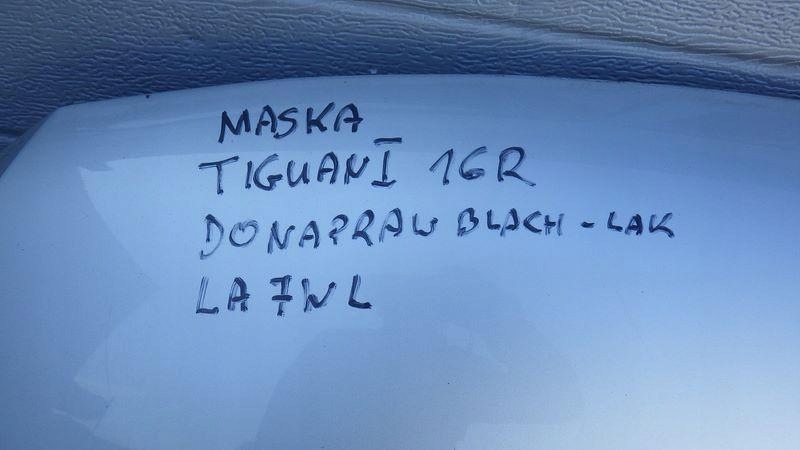 MASKA
TIGUAN I 16R
DO NAPRAW BLACH-LAK
LA7WL